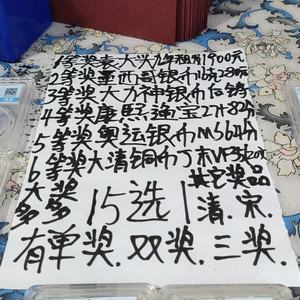 1等奖袁大头9年租用1900元
2等奖墨西哥银币16枚280元
3等奖大力神银币
4等奖康熙通宝2十82分
5等奖奥运银币MS64分
6等奖大清铜币丁未VF35
大奖多多
15选1
其它奖品清.宋.
有单奖.双奖.三奖.